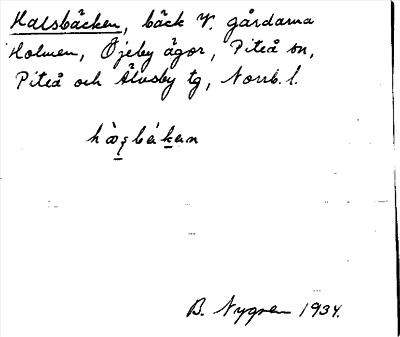 Halsbäcken, bäck V. gårdarna
Holmen, Öjeby ägor, Piteå sn,
Piteå och Älvsby tg, Norrb. l.
B. Nygren 1934.